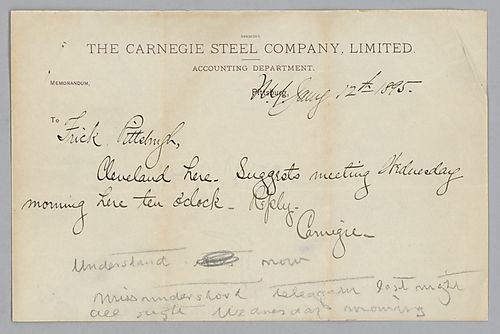 THE CARNEGIE STEEL COMPANY, LIMITED.
ACCOUNTING DEPARTMENT.
MEMORANDUM,
Pittsburg,
N.Y. Jany 12th 1895.
To
Frick Pittsburgh,
Cleveland here. Suggests meeting Wednesday
morning here ten o'clock. Reply.
Carnegie
Understand now
Missunderstood telegram last night
all right Wednesday morning